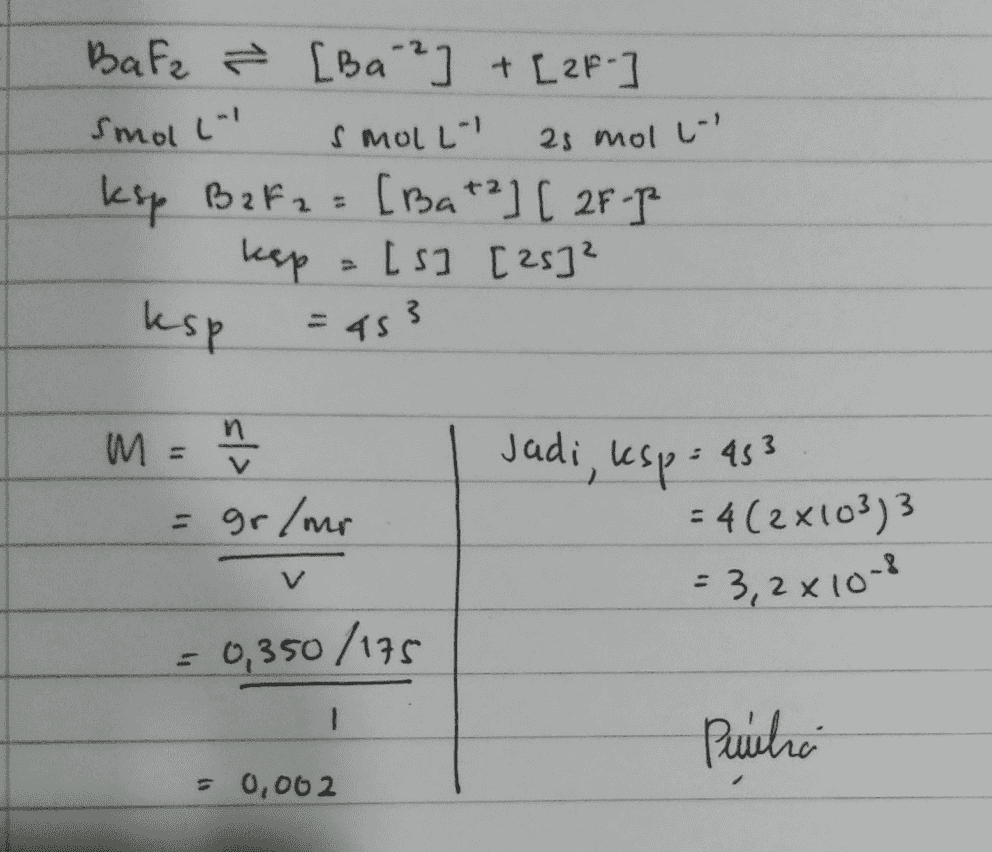 BaF₂ ⇌ [Ba⁻²] + [2F-]
s mol L⁻¹ s mol L⁻¹ 2s mol L⁻¹
ksp B2F₂ = [Ba⁺²] [2F-]²
ksp = [s] [2s]²
ksp = 4s³
M = n/v
= gr/mr
v
= 0,350/175
1
= 0,002
Jadi, ksp = 4s³
= 4(2×10³)³
= 3,2 × 10⁻⁸